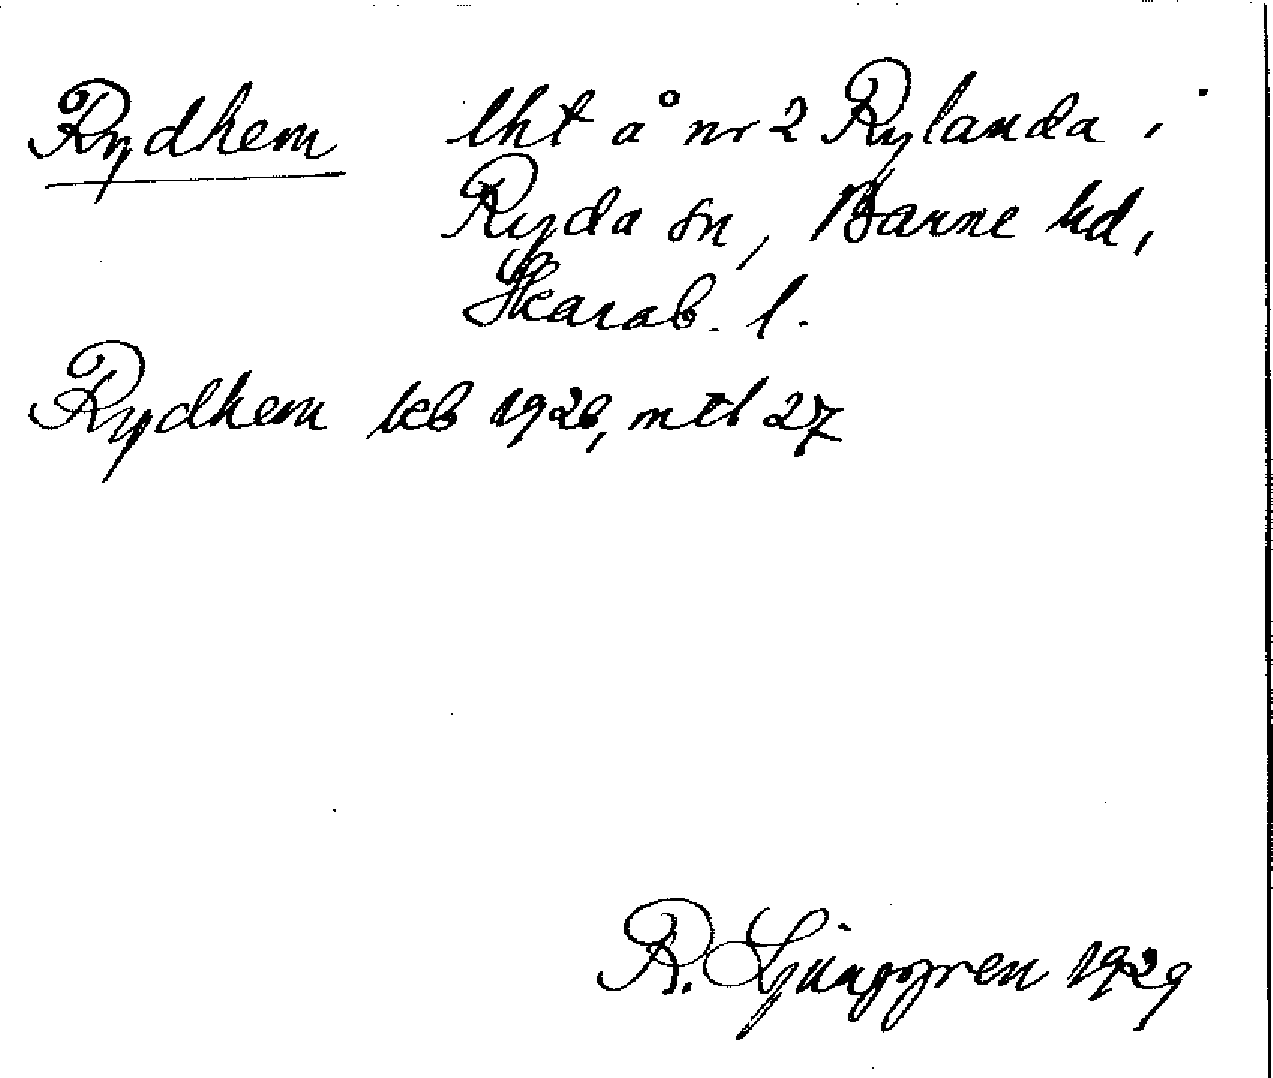 Rydhem lht å nr 2 Rylanda i
Ryda sn, Barne hd,
Skarab. l.
Rydhem keb 1926, mtl 27
R. Ljunggren 1929